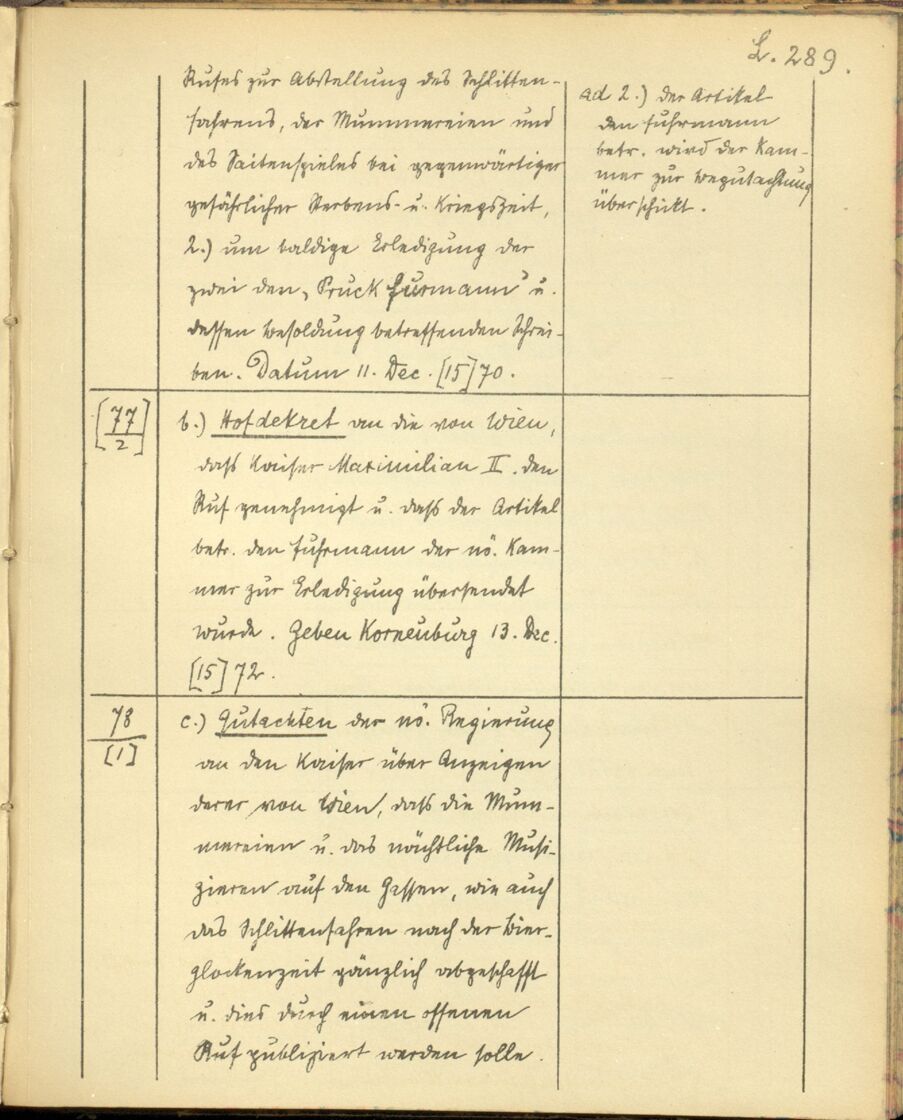 L. 289.
Rufes zur Abstellung des Schlitten-
fahrens, der Mummereien und
des Saitenspieles bei gegenwärtiger
gefährlicher Sterbens- u. Kriegszeit,
2.) um baldige Erledigung der
zwei den „Pruckfurmann" u.
dessen Besoldung betreffenden Schrei-
ben. Datum 11. Dec. [15]70.
ad 2.) der Artikel
den Fuhrmann
betr. wird der Kam-
mer zur Begutachtung
überschickt.
[77/2]
b.) Hofdekret an die von Wien,
daß Kaiser Maximilian II. den
Ruf genehmigt u. daß der Artikel
betr. den Fuhrmann der nö. Kam-
mer zur Erledigung übersendet
wurde. Geben Korneuburg 13. Dec.
[15]72.
78/[1]
c.) Gutachten der nö. Regierung
an den Kaiser über Anzeigen
derer von Wien, daß die Mum-
mereien u. das nächtliche Musi-
zieren auf den Gassen, wie auch
das Schlittenfahren nach der Bier-
glockenzeit gänzlich abgeschafft
u. dies durch einen offenen
Ruf publiziert werden solle.